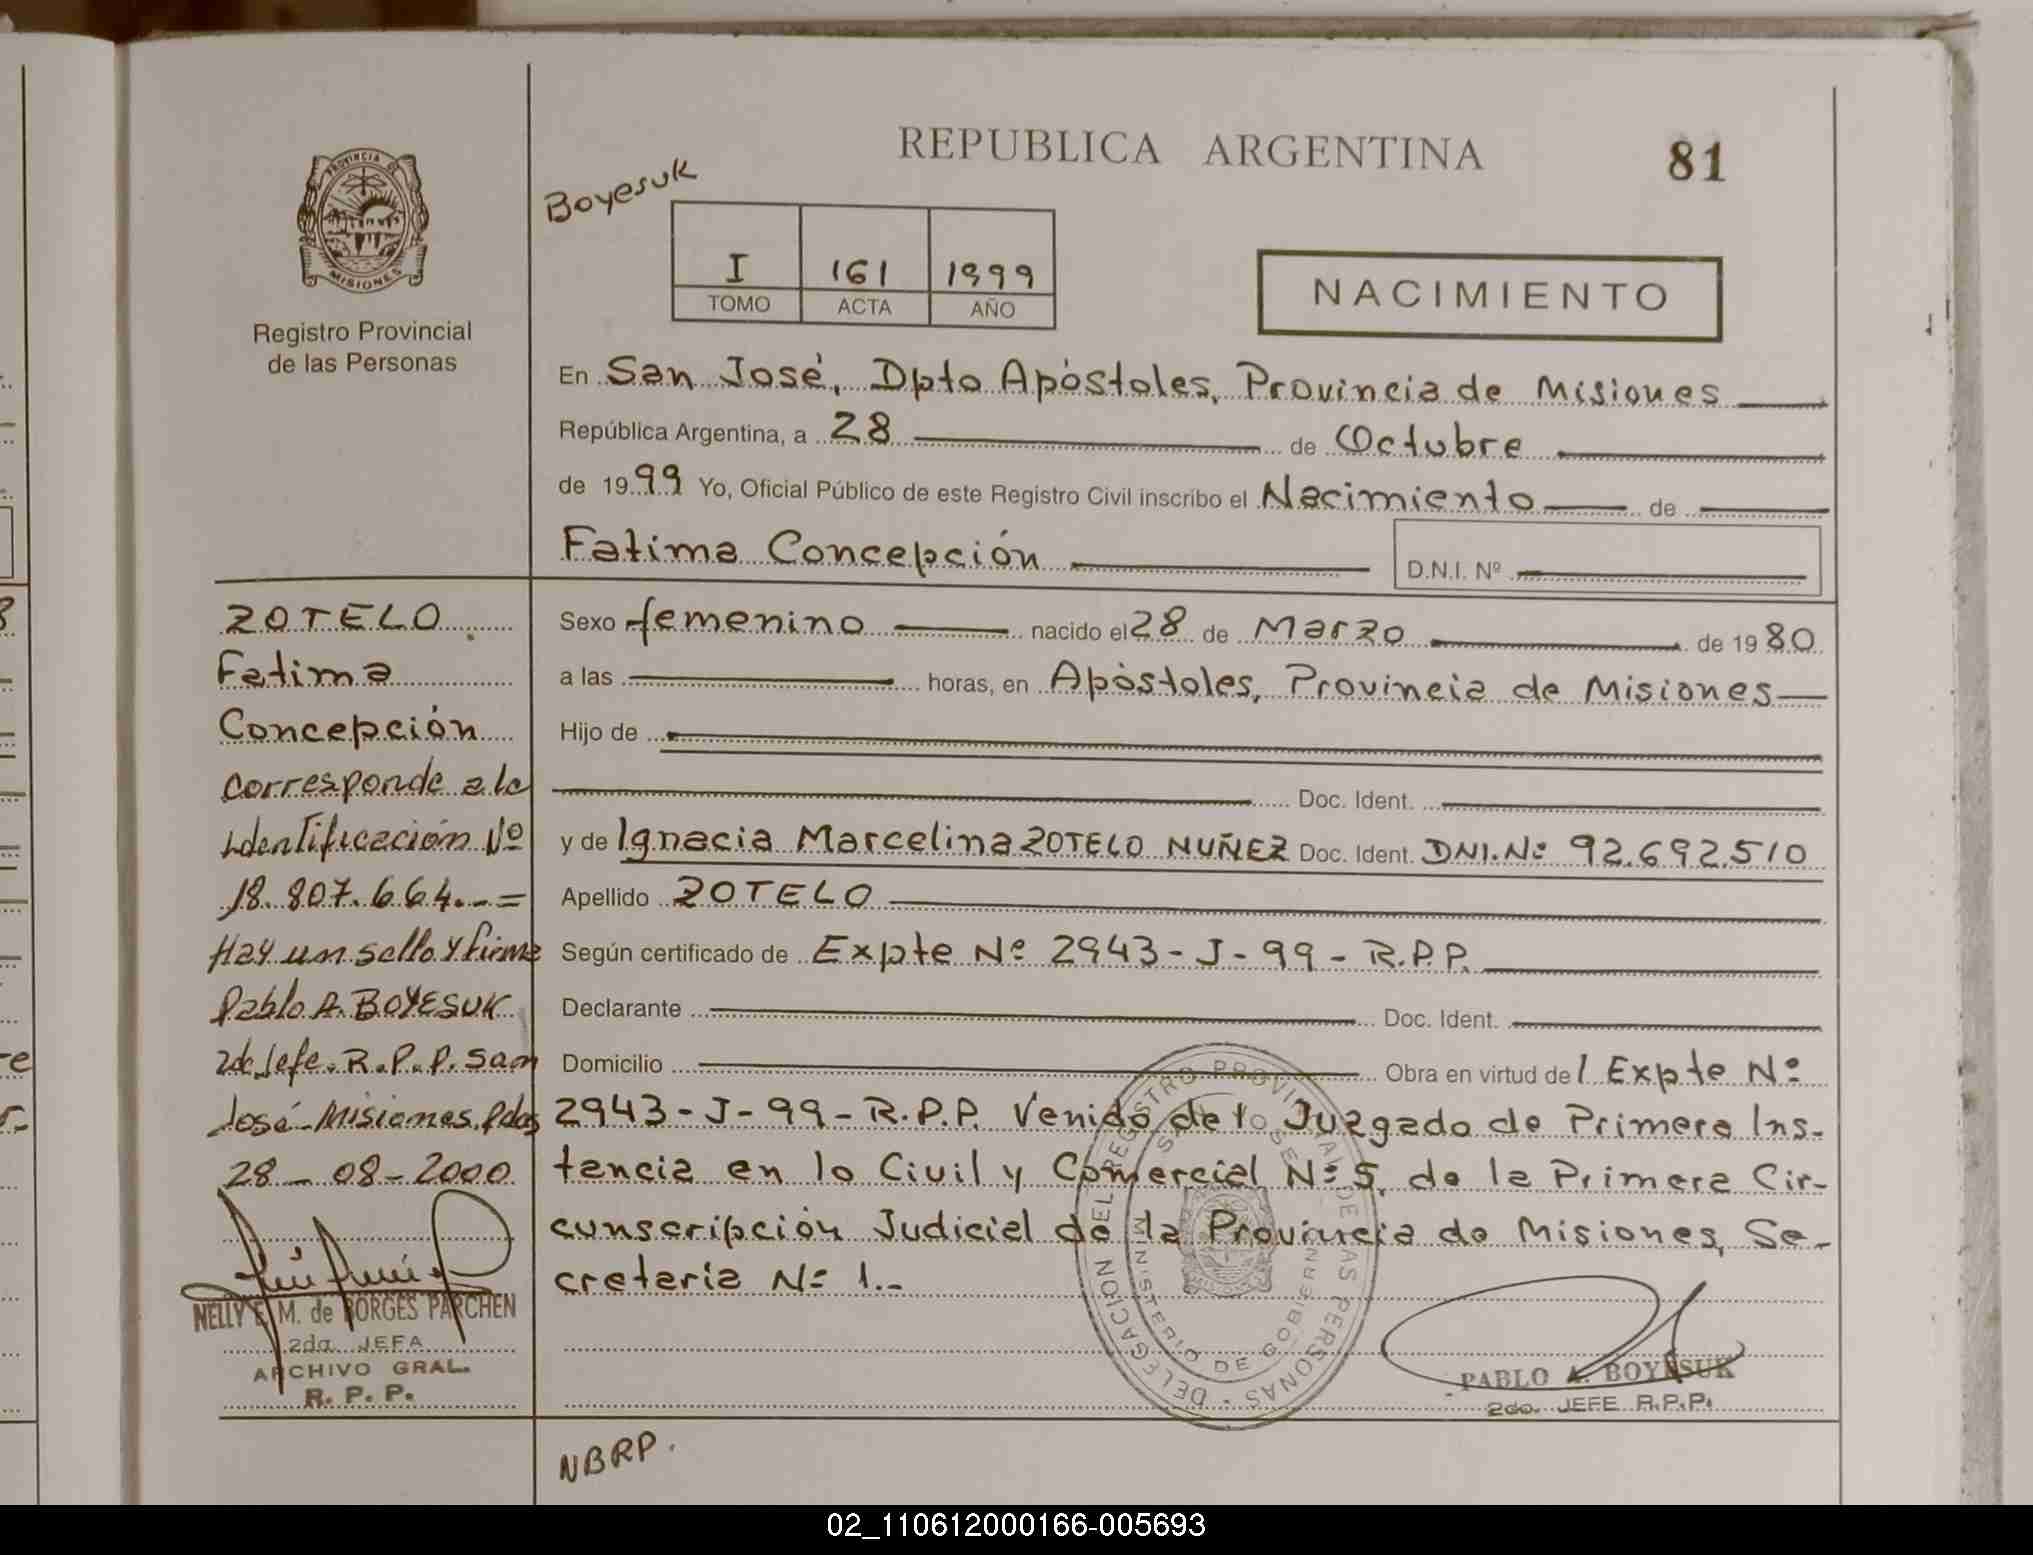 REPUBLICA ARGENTINA
81
Boyesuk
PROVINCIA DE
MISIONES
Registro Provincial
de las Personas
I 161 1999
TOMO ACTA AÑO
NACIMIENTO
En San José, Dpto Apóstoles, Provincia de Misiones
República Argentina, a 28 de Octubre
de 1999 Yo, Oficial Público de este Registro Civil inscribo el Nacimiento de
Fatima Concepción D.N.I. Nº
ZOTELO
Fatima
Concepción
corresponde a la
identificación Nº
18.807.664.-=
Hay un sello y firma
Pablo A. BOYESUK
2do Jefe. R.P.P. San
José-Misiones. Pdas
28-08-2000
NELLY E. M. de BORGES PARCHEN
2da. JEFA
ARCHIVO GRAL.
R. P. P.
Sexo femenino nacido el 28 de Marzo de 1980
a las horas, en Apóstoles, Provincia de Misiones
Hijo de
Doc. Ident.
y de Ignacia Marcelina ZOTELO NUÑEZ Doc. Ident. DNI.Nº 92.692.510
Apellido ZOTELO
Según certificado de Expte Nº 2943-J-99-R.P.P.
Declarante Doc. Ident.
Domicilio Obra en virtud del Expte Nº
2943-J-99-R.P.P. Venido del Juzgado de Primera Ins-
tancia en lo Civil y Comercial Nº 5, de la Primera Cir-
cunscripción Judicial de la Provincia de Misiones, Se-
cretaria Nº 1.-
DELEGACION DEL REGISTRO PROVINCIAL DE LAS PERSONAS
MINISTERIO DE GOBIERNO
SAN JOSE
PABLO A. BOYESUK
2do. JEFE R.P.P.
NBRP.
02_110612000166-005693